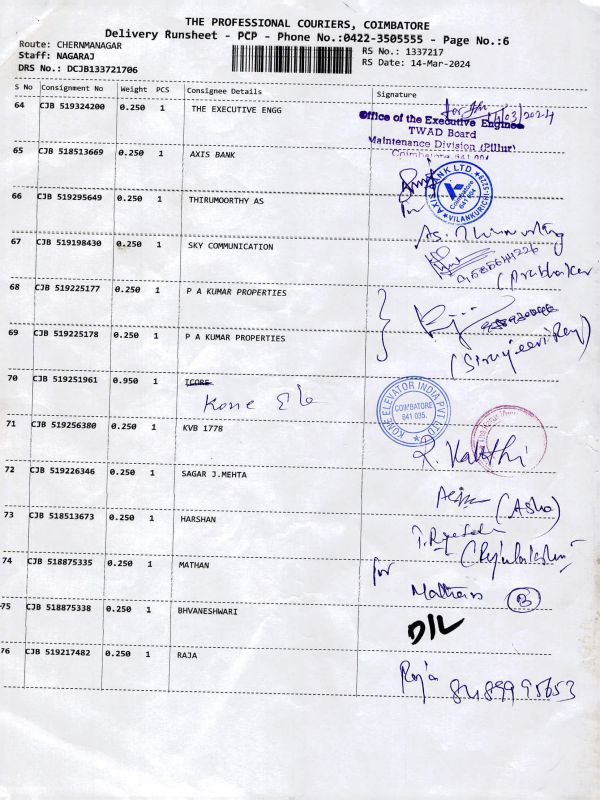 THE PROFESSIONAL COURIERS, COIMBATORE
Delivery Runsheet - PCP - Phone No.:0422-3505555 - Page No.:6
Route: CHERNMANAGAR
RS No.: 1337217
Staff: NAGARAJ
RS Date: 14-Mar-2024
DRS No.: DCJB133721706
S No Consignment No Weight PCS Consignee Details Signature
64 CJB 519324200 0.250 1 THE EXECUTIVE ENGG
/03/2024
Office of the Executive Engineer
TWAD Board
Maintenance Division (Pillur)
Coimbatore 641 004
65 CJB 518513669 0.250 1 AXIS BANK
AXIS BANK LTD
Coimbatore
641 004
VILANKURICHI
66 CJB 519295649 0.250 1 THIRUMOORTHY AS
67 CJB 519198430 0.250 1 SKY COMMUNICATION
(Prabhakar
68 CJB 519225177 0.250 1 P A KUMAR PROPERTIES
69 CJB 519225178 0.250 1 P A KUMAR PROPERTIES
70 CJB 519251961 0.950 1 TCORE
Kone Ele
KONE ELEVATOR INDIA PVT LTD
COIMBATORE
641 035.
71 CJB 519256380 0.250 1 KVB 1778
72 CJB 519226346 0.250 1 SAGAR J.MEHTA
(Asha)
73 CJB 518513673 0.250 1 HARSHAN
74 CJB 518875335 0.250 1 MATHAN
for
75 CJB 518875338 0.250 1 BHVANESHWARI
D/L
76 CJB 519217482 0.250 1 RAJA
Raja